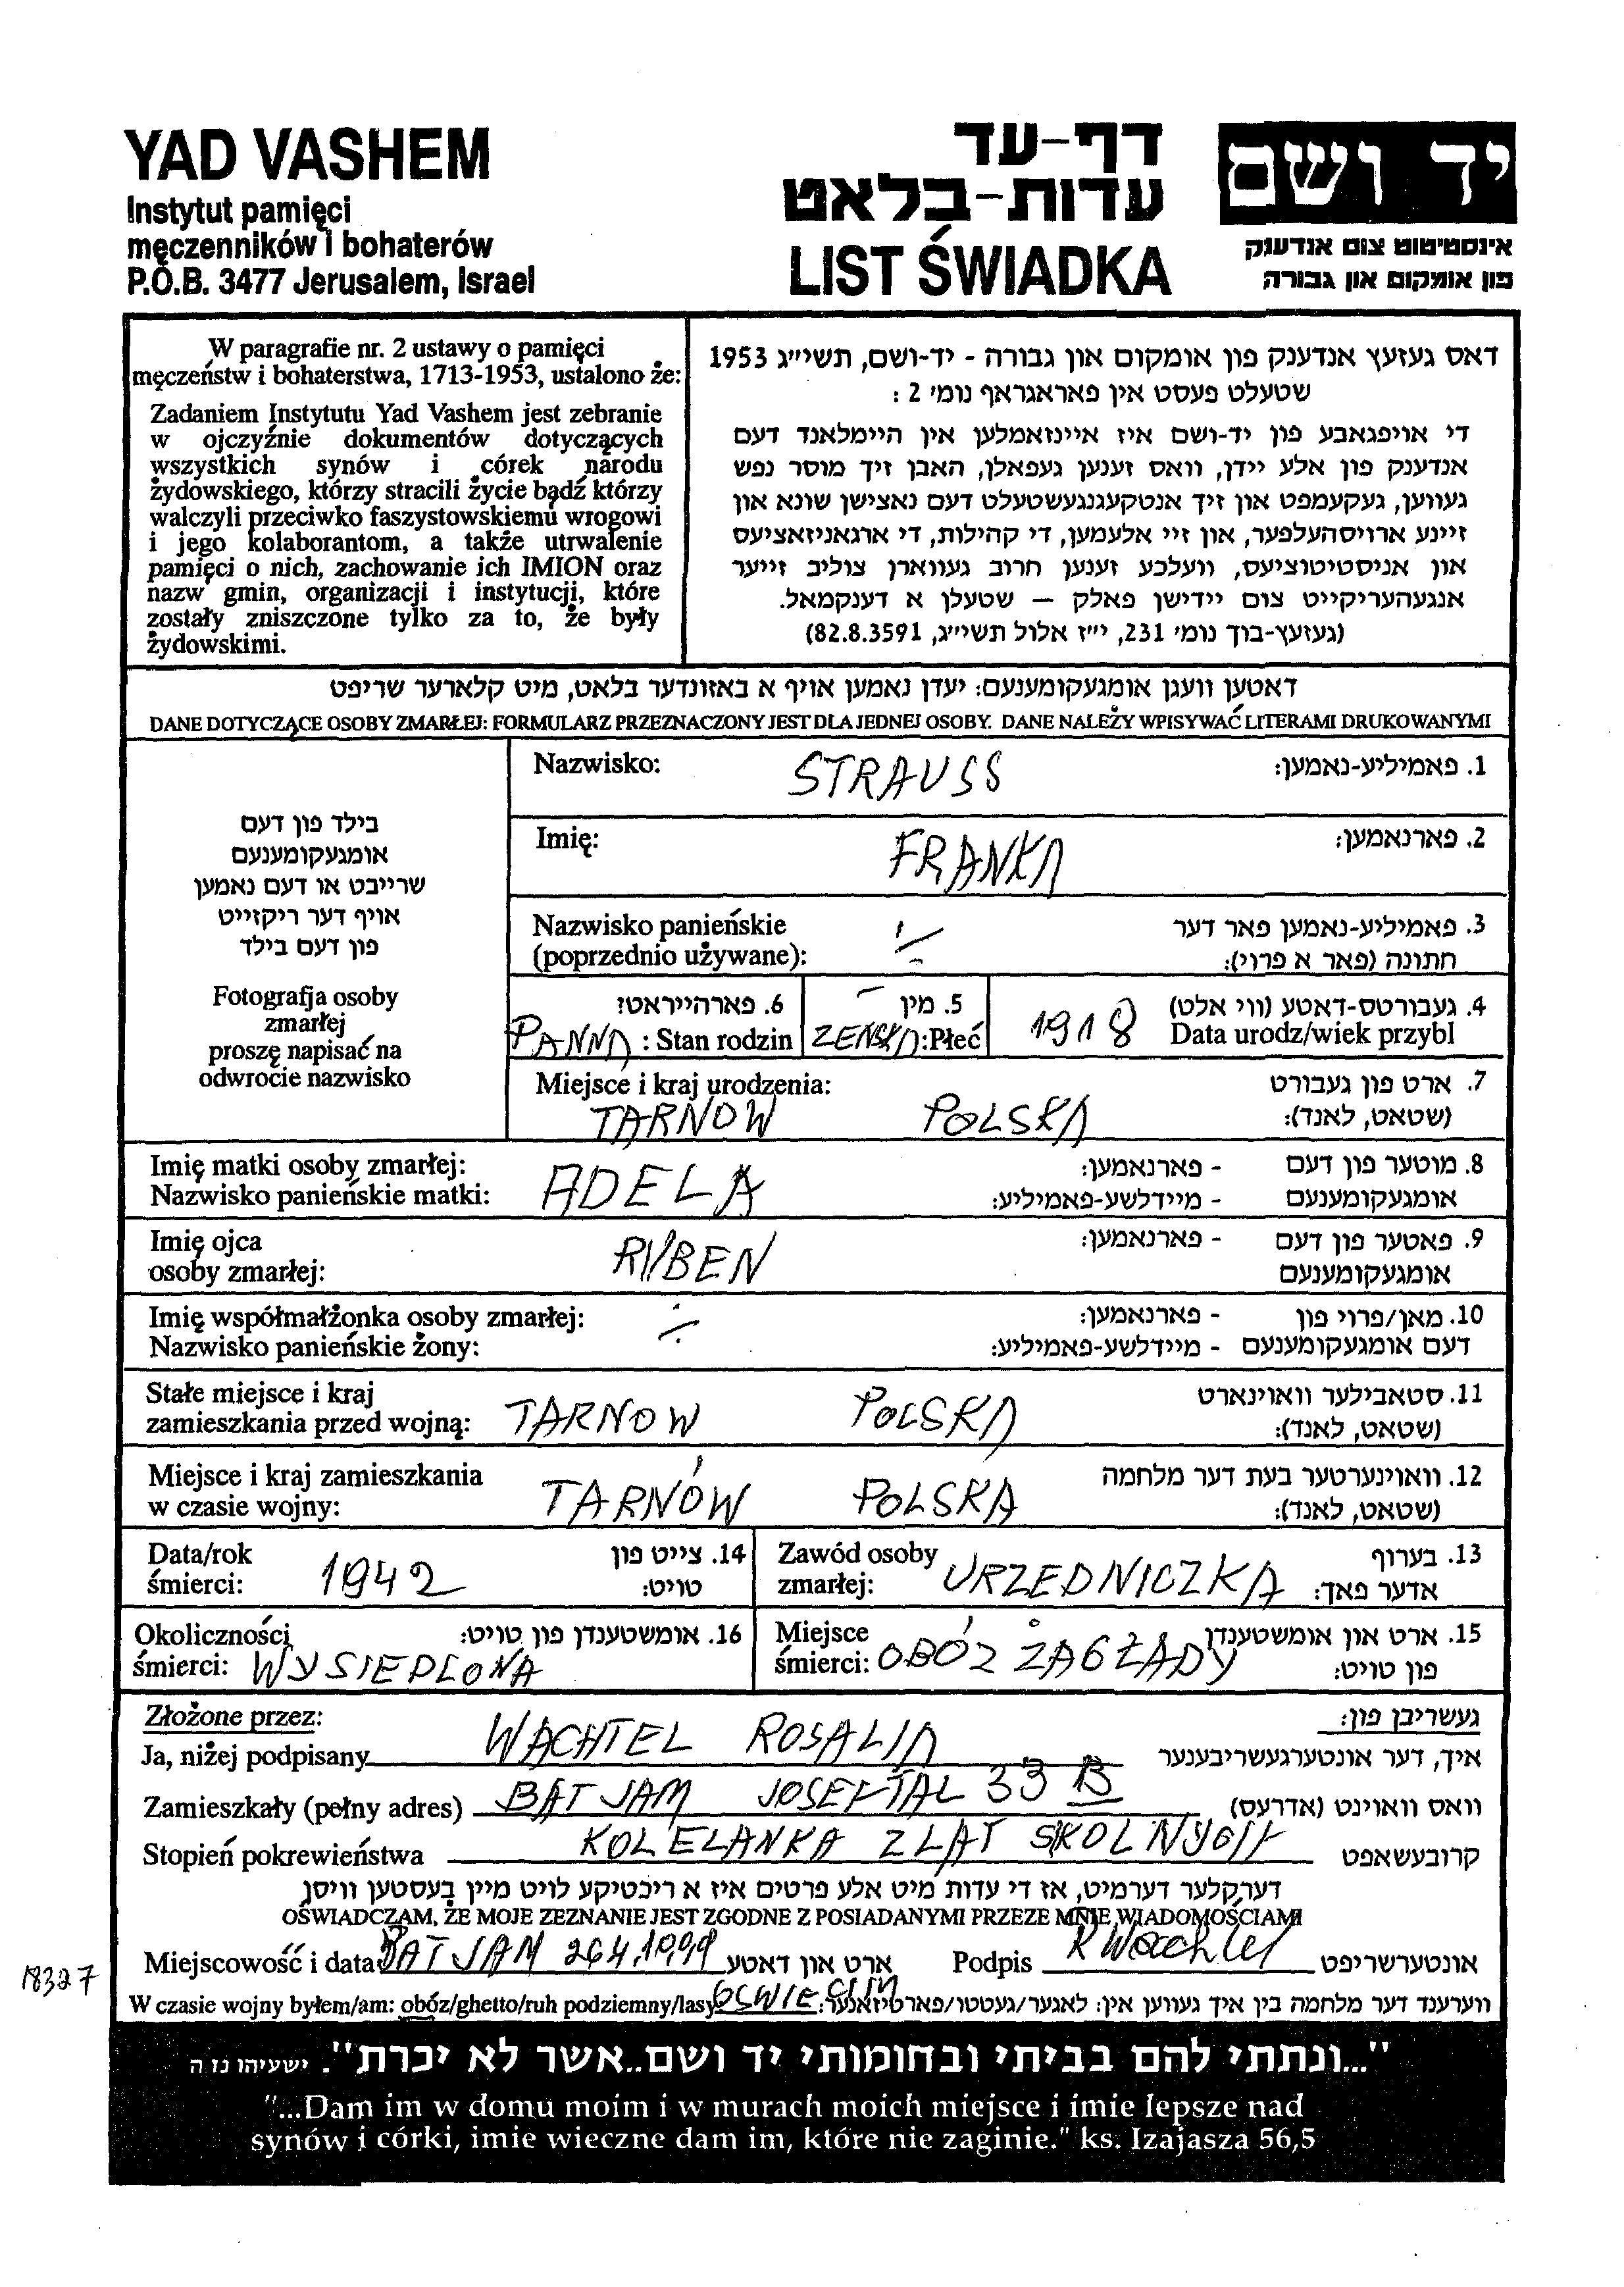 YAD VASHEM
Instytut pamięci
męczenników i bohaterów
P.O.B. 3477 Jerusalem, Israel
דף-עד
עדות-בלאט
LIST ŚWIADKA
יד ושם
אינסטיטוט צום אנדענק
פון אומקום און גבורה
W paragrafie nr. 2 ustawy o pamięci
męczeństw i bohaterstwa, 1713-1953, ustalono że:
Zadaniem Instytutu Yad Vashem jest zebranie
w ojczyźnie dokumentów dotyczących
wszystkich synów i córek narodu
żydowskiego, którzy stracili życie bądź którzy
walczyli przeciwko faszystowskiemu wrogowi
i jego kolaborantom, a także utrwalenie
pamięci o nich, zachowanie ich IMION oraz
nazw gmin, organizacji i instytucji, które
zostały zniszczone tylko za to, że były
żydowskimi.
דאס געזעץ אנדענק פון אומקום און גבורה - יד-ושם, תשי״ג 1953
שטעלט פעסט אין פאראגראף נומ׳ 2 :
די אויפגאבע פון יד-ושם איז איינזאמלען אין היימלאנד דעם
אנדענק פון אלע יידן, וואס זענען געפאלן, האבן זיך מוסר נפש
געווען, געקעמפט און זיך אנטקעגנגעשטעלט דעם נאצישן שונא און
זיינע ארויסהעלפער, און זיי אלעמען, די קהילות, די ארגאניזאציעס
און אניסטיטוציעס, וועלכע זענען חרוב געווארן צוליב זייער
אנגעהעריקייט צום יידישן פאלק — שטעלן א דענקמאל.
(געזעץ-בוך נומ׳ 231, י״ז אלול תשי״ג, 82.8.3591)
דאטען וועגן אומגעקומענעם: יעדן נאמען אויף א באזונדער בלאט, מיט קלארער שריפט
DANE DOTYCZĄCE OSOBY ZMARŁEJ: FORMULARZ PRZEZNACZONY JEST DLA JEDNEJ OSOBY. DANE NALEŻY WPISYWAĆ LITERAMI DRUKOWANYMI
בילד פון דעם
אומגעקומענעם
שרייבט או דעם נאמען
אויף דער ריקזייט
פון דעם בילד
Fotografja osoby
zmarłej
proszę napisać na
odwrocie nazwisko
Nazwisko: STRAUSS 1. פאמיליע-נאמען:
Imię: FRANKA 2. פארנאמען:
Nazwisko panieńskie 3. פאמיליע-נאמען פאר דער
(poprzednio używane): חתונה (פאר א פרוי):
6. פארהייראט? 5. מין 4. געבורטס-דאטע (ווי אלט)
PANNA : Stan rodzin ZENSKA :Płeć 1918 Data urodz/wiek przybl
Miejsce i kraj urodzenia: 7. ארט פון געבורט
TARNOW POLSKA (שטאט, לאנד):
Imię matki osoby zmarłej: - פארנאמען: 8. מוטער פון דעם
Nazwisko panieńskie matki: ADELA - מיידלשע-פאמיליע: אומגעקומענעם
Imię ojca RUBEN - פארנאמען: 9. פאטער פון דעם
osoby zmarłej: אומגעקומענעם
Imię współmałżonka osoby zmarłej: - פארנאמען: 10. מאן/פרוי פון
Nazwisko panieńskie żony: - מיידלשע-פאמיליע: דעם אומגעקומענעם
Stałe miejsce i kraj 11. סטאבילער וואוינארט
zamieszkania przed wojną: TARNOW POLSKA (שטאט, לאנד):
Miejsce i kraj zamieszkania 12. וואוינערטער בעת דער מלחמה
w czasie wojny: TARNÓW POLSKA (שטאט, לאנד):
Data/rok 14. צייט פון Zawód osoby 13. בערוף
śmierci: 1942 טויט: zmarłej: URZEDNICZKA אדער פאך:
Okoliczności 16. אומשטענדן פון טויט: Miejsce 15. ארט און אומשטענדן
śmierci: WYSIEDLONA śmierci: OBÓZ ZAGŁADY פון טויט:
Złożone przez: געשריבן פון:
Ja, niżej podpisany WACHTEL ROSALIA איך, דער אונטערגעשריבענער
Zamieszkały (pełny adres) BAT JAM JOSEFTAL 33 B וואס וואוינט (אדרעס)
Stopień pokrewieństwa KOLELANKA Z LAT SKOLNYCH קרובעשאפט
דערקלער דערמיט, אז די עדות מיט אלע פרטים איז א ריכטיקע לויט מיין בעסטען וויסן
OŚWIADCZAM, ŻE MOJE ZEZNANIE JEST ZGODNE Z POSIADANYMI PRZEZE MNIE WIADOMOŚCIAMI
Miejscowość i data BAT JAM 26.4.1999 ארט און דאטע Podpis R Wachtel אונטערשריפט
18327
W czasie wojny byłem/am: obóz/ghetto/ruh podziemny/lasy OSWIECIM ווערענד דער מלחמה בין איך געווען אין: לאגער/געטטו/פארטיזאנער:
"...ונתתי להם בביתי ובחומותי יד ושם..אשר לא יכרת". ישעיהו נז ה
"...Dam im w domu moim i w murach moich miejsce i imie lepsze nad
synów i córki, imie wieczne dam im, które nie zaginie." ks. Izajasza 56,5